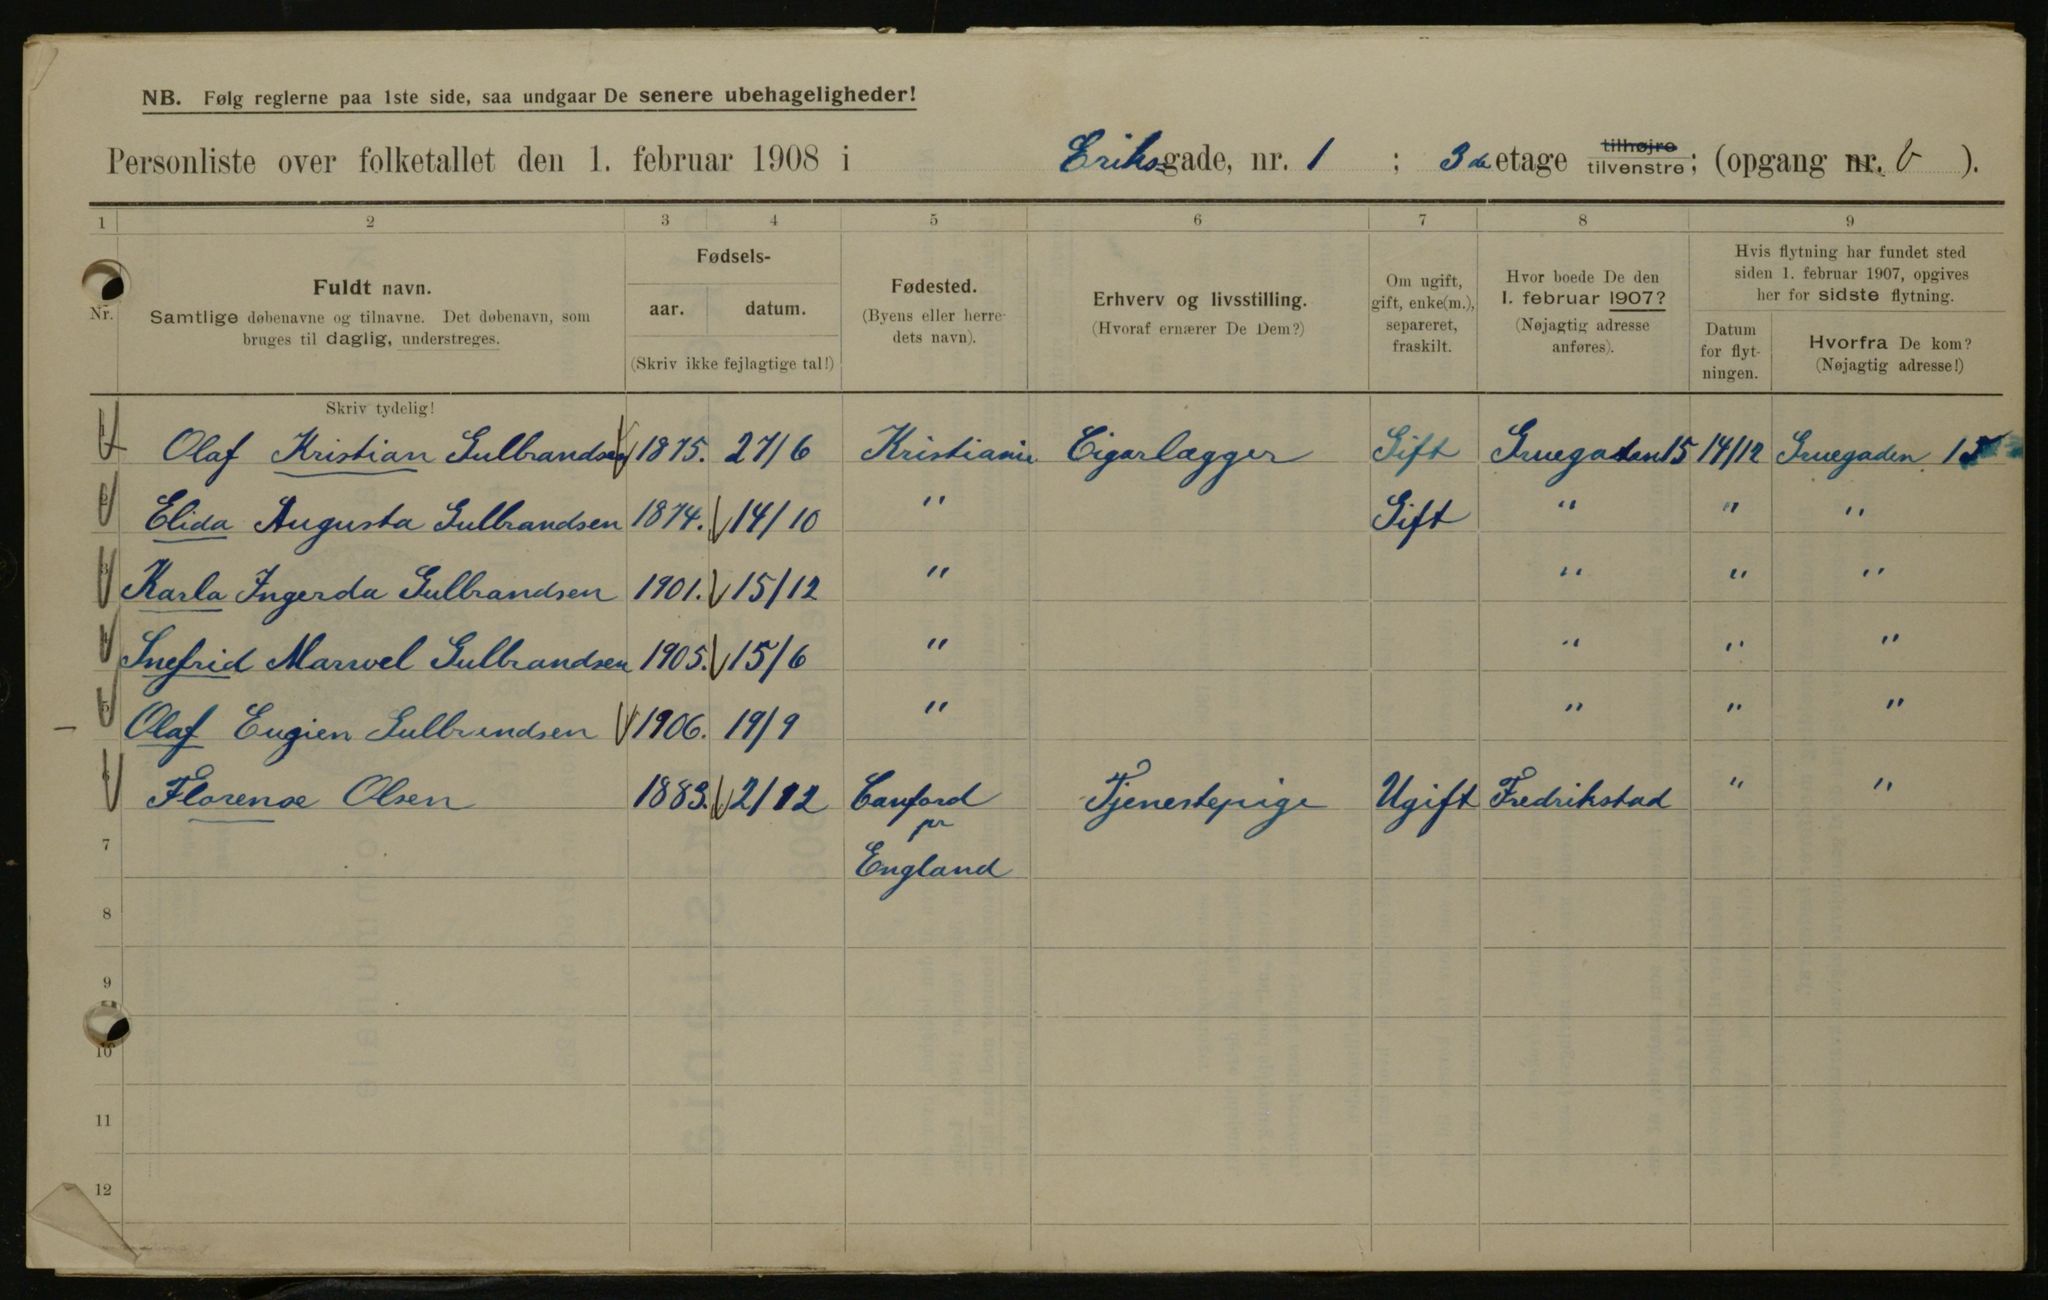 NB. Følg reglerne paa 1ste side, saa undgaar De senere ubehageligheder!
Personliste over folketallet den 1. februar 1908 i Eriksgade, nr. 1 ; 3de etage tilhøjre tilvenstre; (opgang nr. V ).
1 2 3 4 5 6 7 8 9
Nr.
Fuldt navn.
Samtlige døbenavne og tilnavne. Det døbenavn, som
bruges til daglig, understreges.
Skriv tydelig!
Fødsels-
aar. datum.
(Skriv ikke fejlagtige tal!)
Fødested.
(Byens eller herre-
dets navn).
Erhverv og livsstilling.
(Hvoraf ernærer De Dem?)
Om ugift,
gift, enke(m.),
separeret,
fraskilt.
Hvor boede De den
1. februar 1907?
(Nøjagtig adresse
anføres).
Hvis flytning har fundet sted
siden 1. februar 1907, opgives
her for sidste flytning.
Datum
for flyt-
ningen.
Hvorfra De kom?
(Nøjagtig adresse!)
1 Olaf Kristian Gulbrandsen 1875. 27/6 Kristiania Cigarlægger Gift Gruegaden 15 14/12 Gruegaden 15
2 Elida Augusta Gulbrandsen 1874. 14/10 " Gift " " "
3 Karla Ingerda Gulbrandsen 1901. 15/12 " " " "
4 Snefrid Marwel Gulbrandsen 1905. 15/6 " " " "
5 Olaf Eugien Gulbrandsen 1906. 19/9 " " " "
6 Florense Olsen 1883. 2/12 Canford Tjenestepige Ugift Fredrikstad " "
pr
7 England
8
9
10
11
12